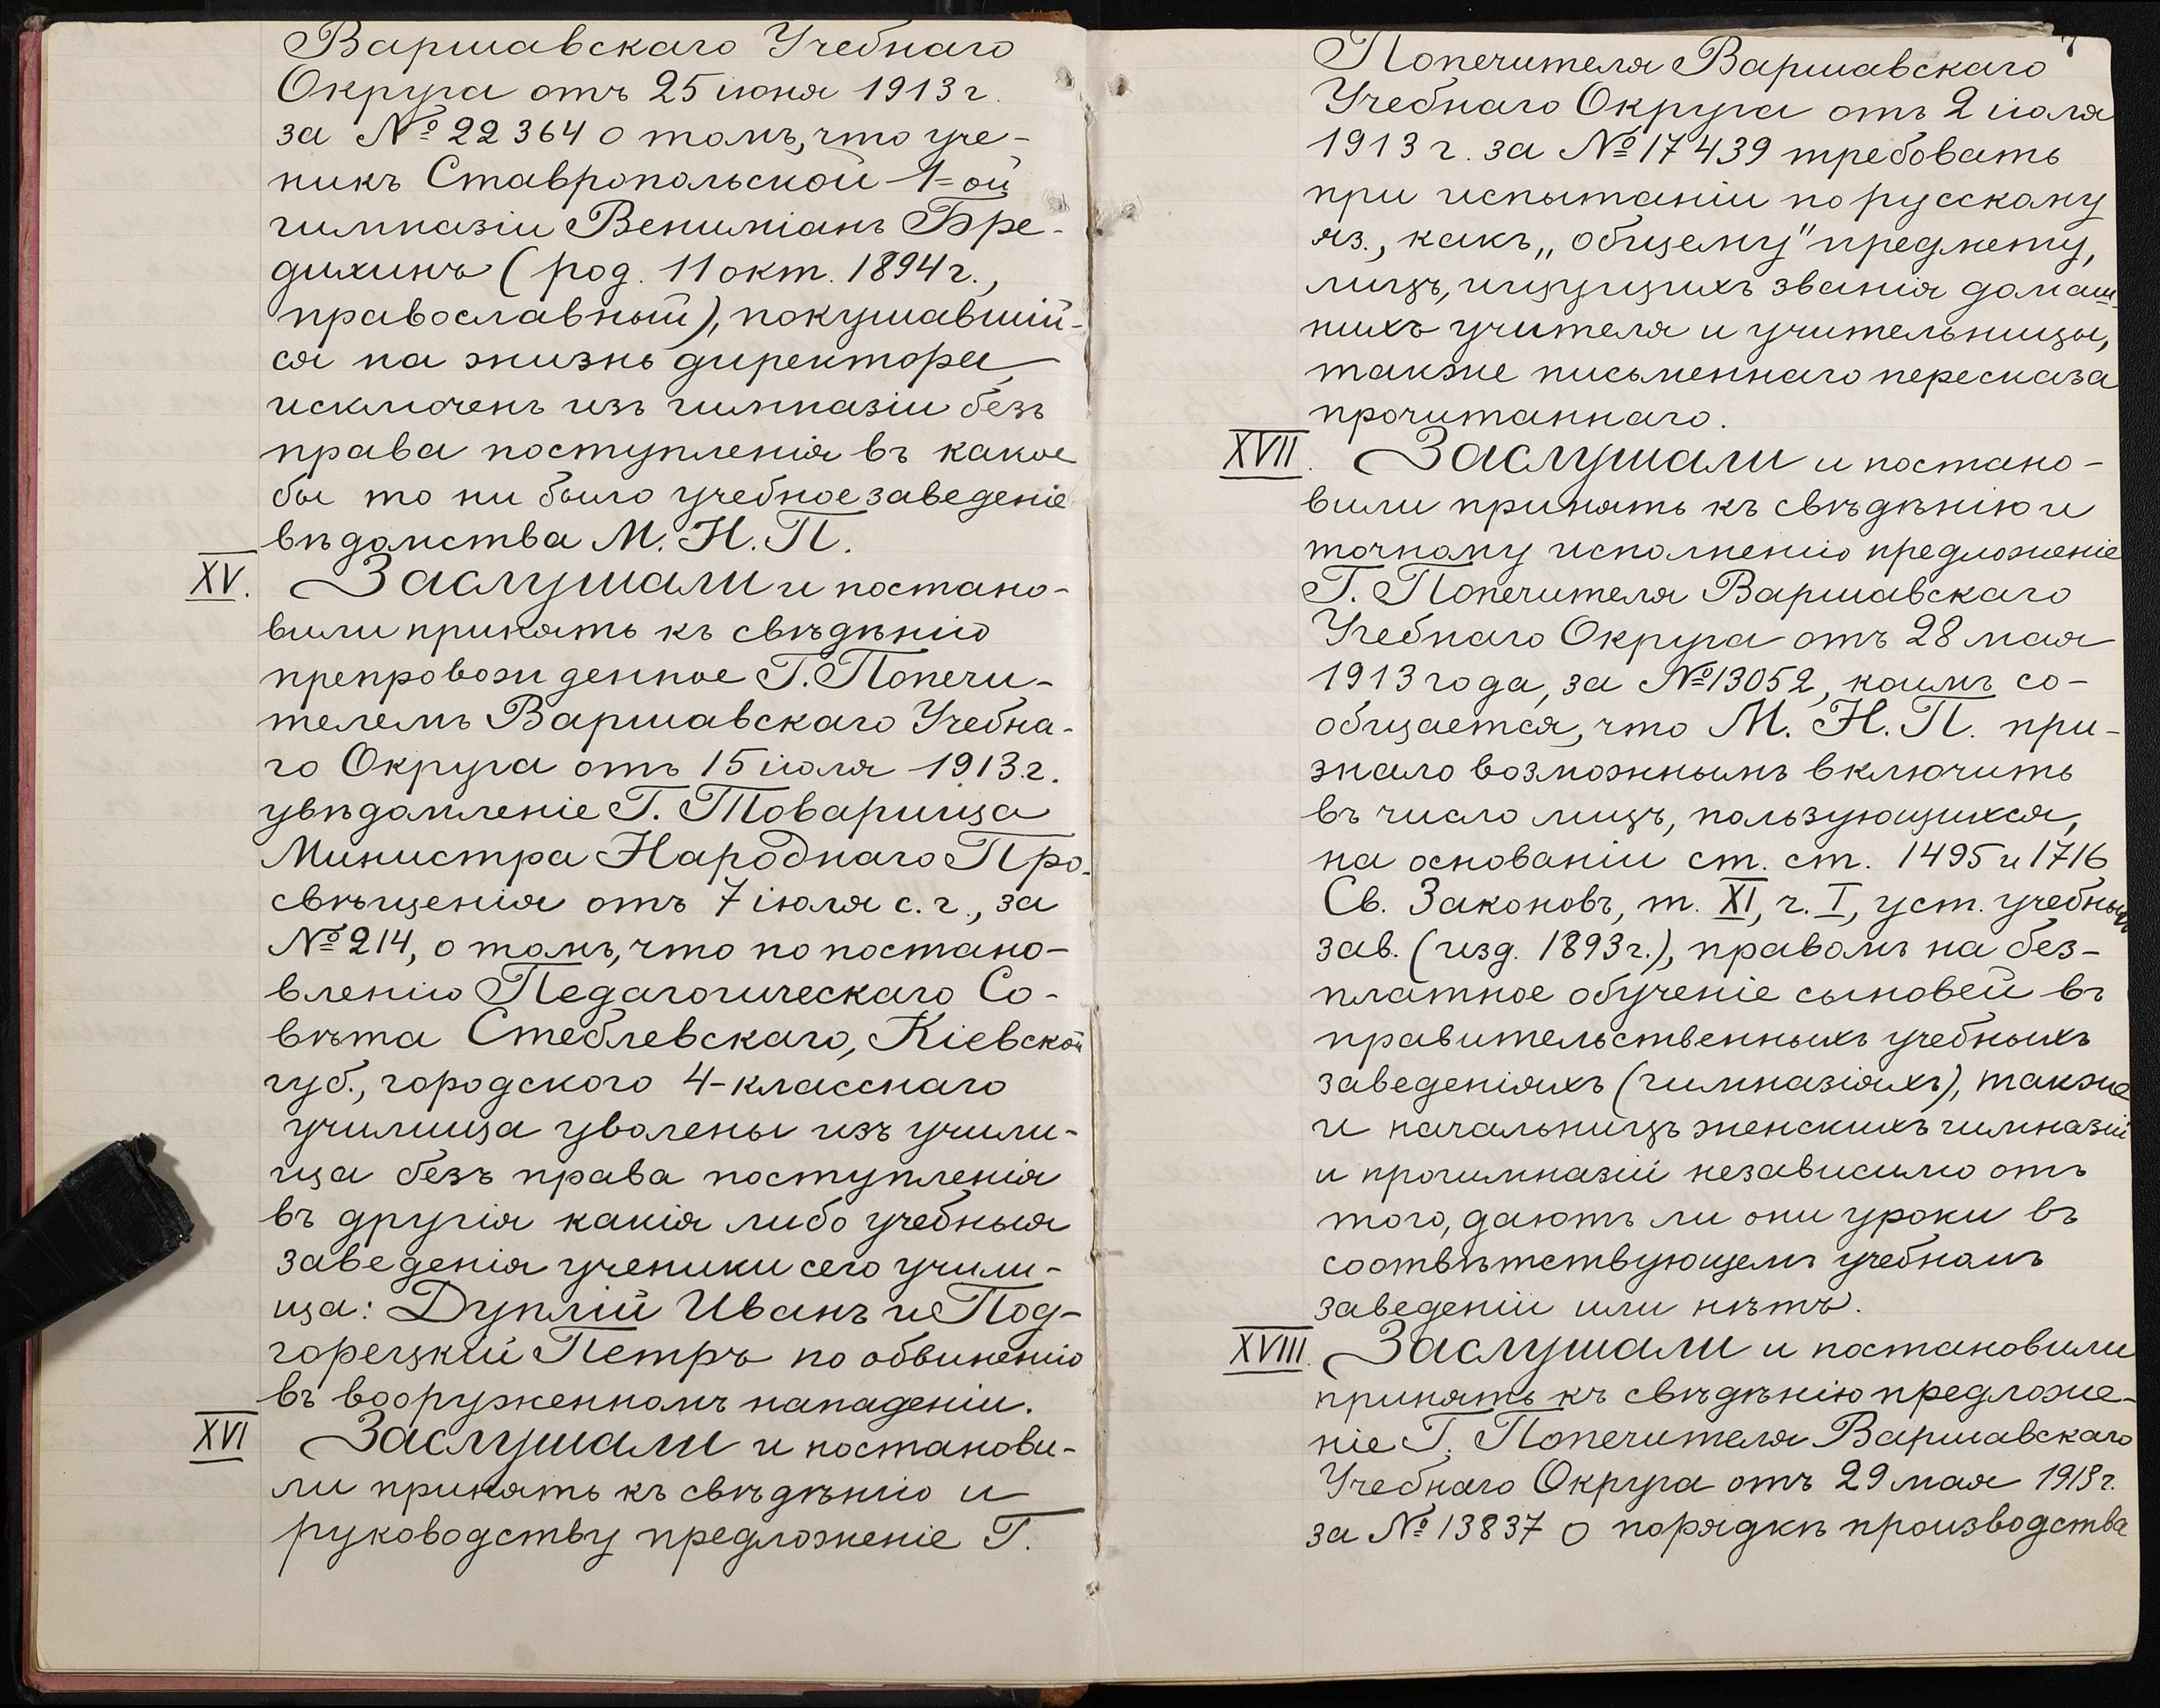 Варшавскаго Учебнаго
Округа отъ 25 іюня 1913 г.
за № 22364 о томъ, что уче-
никъ Ставропольской 1=ой
гимназіи Вениміанъ Бре-
дихинъ (род. 11 окт. 1894 г.,
православный), покушавшій-
ся на жизнь директора,
исключенъ изъ гимназіи безъ
права поступленія въ какое
бы то ни было учебное заведеніе
вѣдомства М. Н. П.
XV. Заслушали и постано-
вили принять къ свѣдѣнію
препровожденное Г. Попечи-
телемъ Варшавскаго Учебна-
го Округа отъ 15 іюля 1913 г.
увѣдомленіе Г. Товарища
Министра Народнаго Про-
свѣщенія отъ 7 іюля с. г., за
№ 214, о томъ, что по постано-
вленію Педагогическаго Со-
вѣта Стеблевскаго, Кіевской
губ., городского 4-класснаго
училища уволены изъ учили-
ща безъ права поступленія
въ другія какія либо учебныя
заведенія ученики сего учили-
ща: Дуплій Иванъ и Под-
горецкій Петръ по обвиненію
въ вооруженномъ нападеніи.
XVI Заслушали и постанови-
ли принять къ свѣдѣнію и
руководству предложеніе Г.
7
Попечителя Варшавскаго
Учебнаго Округа отъ 2 іюля
1913 г. за № 17439 требовать
при испытаніи по русскому
яз., какъ „общему" предмету,
лицъ, ищущихъ званія домаш-
нихъ учителя и учительницы,
также письменнаго пересказа
прочитаннаго.
XVII. Заслушали и постано-
вили принять къ свѣдѣнію и
точному исполненію предложеніе
Г. Попечителя Варшавскаго
Учебнаго Округа отъ 28 мая
1913 года, за № 13052, коимъ со-
общается, что М. Н. П. при-
знало возможнымъ включить
въ число лицъ, пользующихся,
на основаніи ст. ст. 1495 и 1716
Св. Законовъ, т. XI, ч. I, уст. учебныхъ
зав. (изд. 1893 г.), правомъ на без-
платное обученіе сыновей въ
правительственныхъ учебныхъ
заведеніяхъ (гимназіяхъ), также
и начальницъ женскихъ гимназій
и прогимназій независимо отъ
того, даютъ ли они уроки въ
соотвѣтствующемъ учебномъ
заведеніи или нѣтъ.
XVIII. Заслушали и постановили
принять къ свѣдѣнію предложе-
ніе Г. Попечителя Варшавскаго
Учебнаго Округа отъ 29 мая 1913 г.
за № 13837 о порядкѣ производства